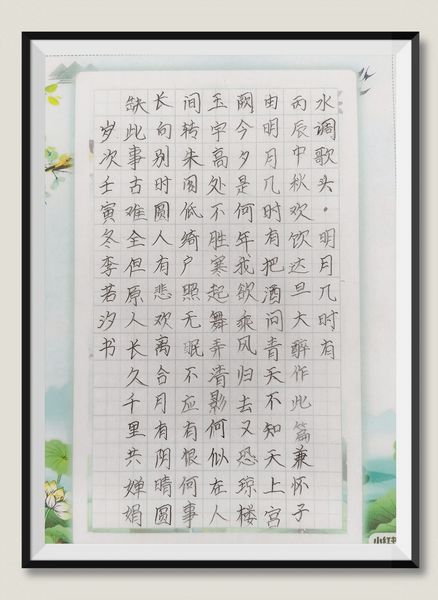 水调歌头·明月几时有
丙辰中秋欢饮这旦大醉作此篇兼怀子
由明月几时有把酒问青天不知天上宫
阙今夕是何年我欲乘风归去又恐琼楼
玉宇高处不胜寒起舞弄清影何似在人
间转朱阁低绮户照无眠不应有恨何事
长向别时圆人有悲欢离合月有阴晴圆
缺此事古难全但原人长久千里共婵娟
岁次壬寅冬李若汐书